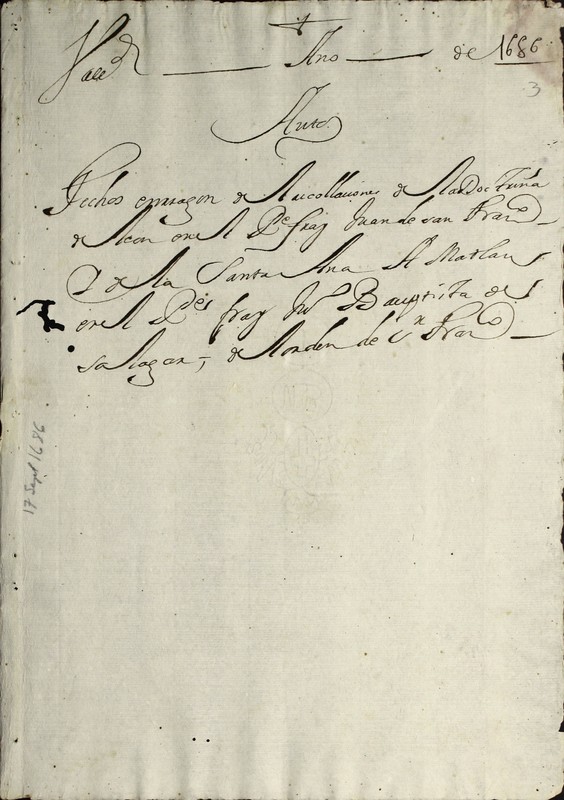 ✝
Valld Año de 1686
3
Autos
Fechos en rrazon de las collaciones de la Doctrina
de leon en el Pe fray Juan de san Franco
Y de la Santa Ana Amatlan
en el Pe fray Ju Bauptista de
salazar, de la orden de sn Franco
17 Sept 1686